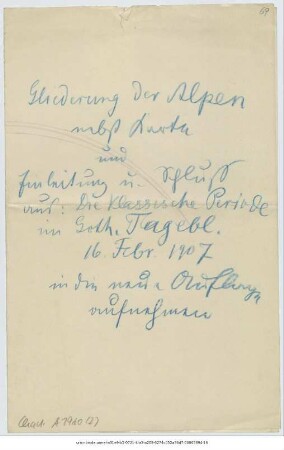 69
Gliederung der Alpen
nebst Karte
und
Einleitung u. Schluß
aus: Die klassische Periode
im Goth. Tagebl.
16. Febr. 1907
in die neue Auflage
aufnehmen
Chart. A 1960 (2)